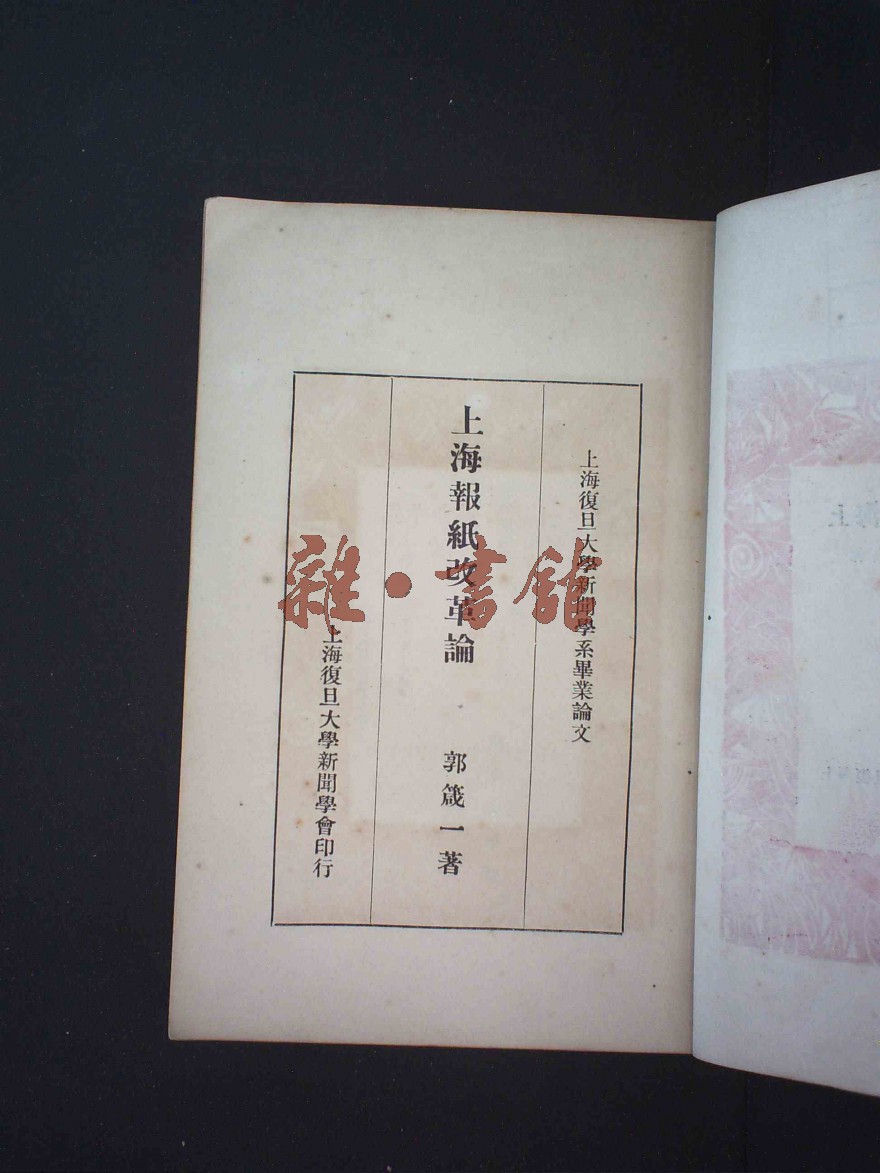 上海復旦大學新聞學系畢業論文
上海報紙改革論
郭箴一著
上海復旦大學新聞學會印行
雜·書館